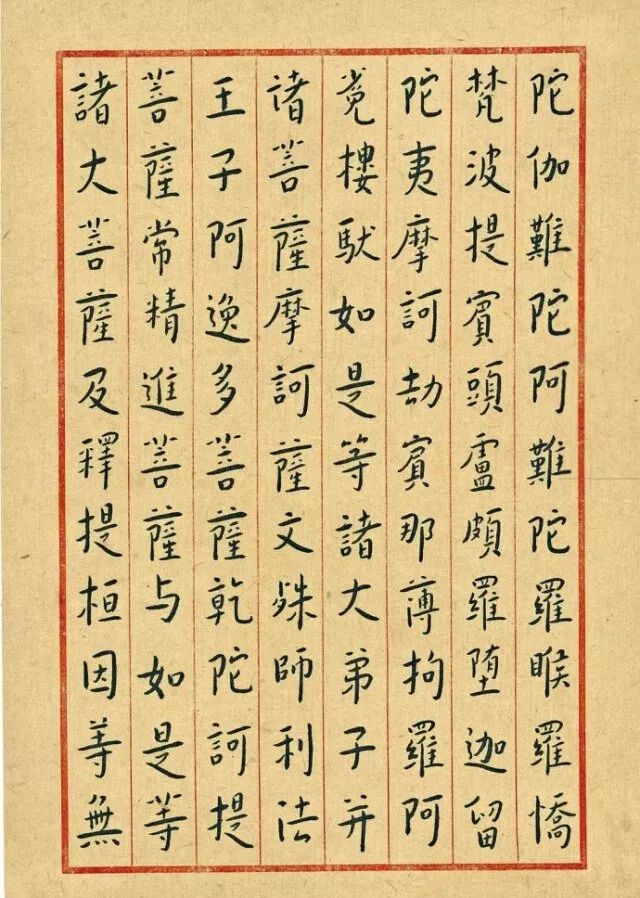 陀伽難陀阿難陀羅睺羅憍
梵波提賓頭盧頗羅墮迦留
陀夷摩訶劫賓那薄拘羅阿
㝹樓馱如是等諸大弟子并
诸菩薩摩訶薩文殊師利法
王子阿逸多菩薩乾陀訶提
菩薩常精進菩薩与如是等
諸大菩薩及釋提桓因等無